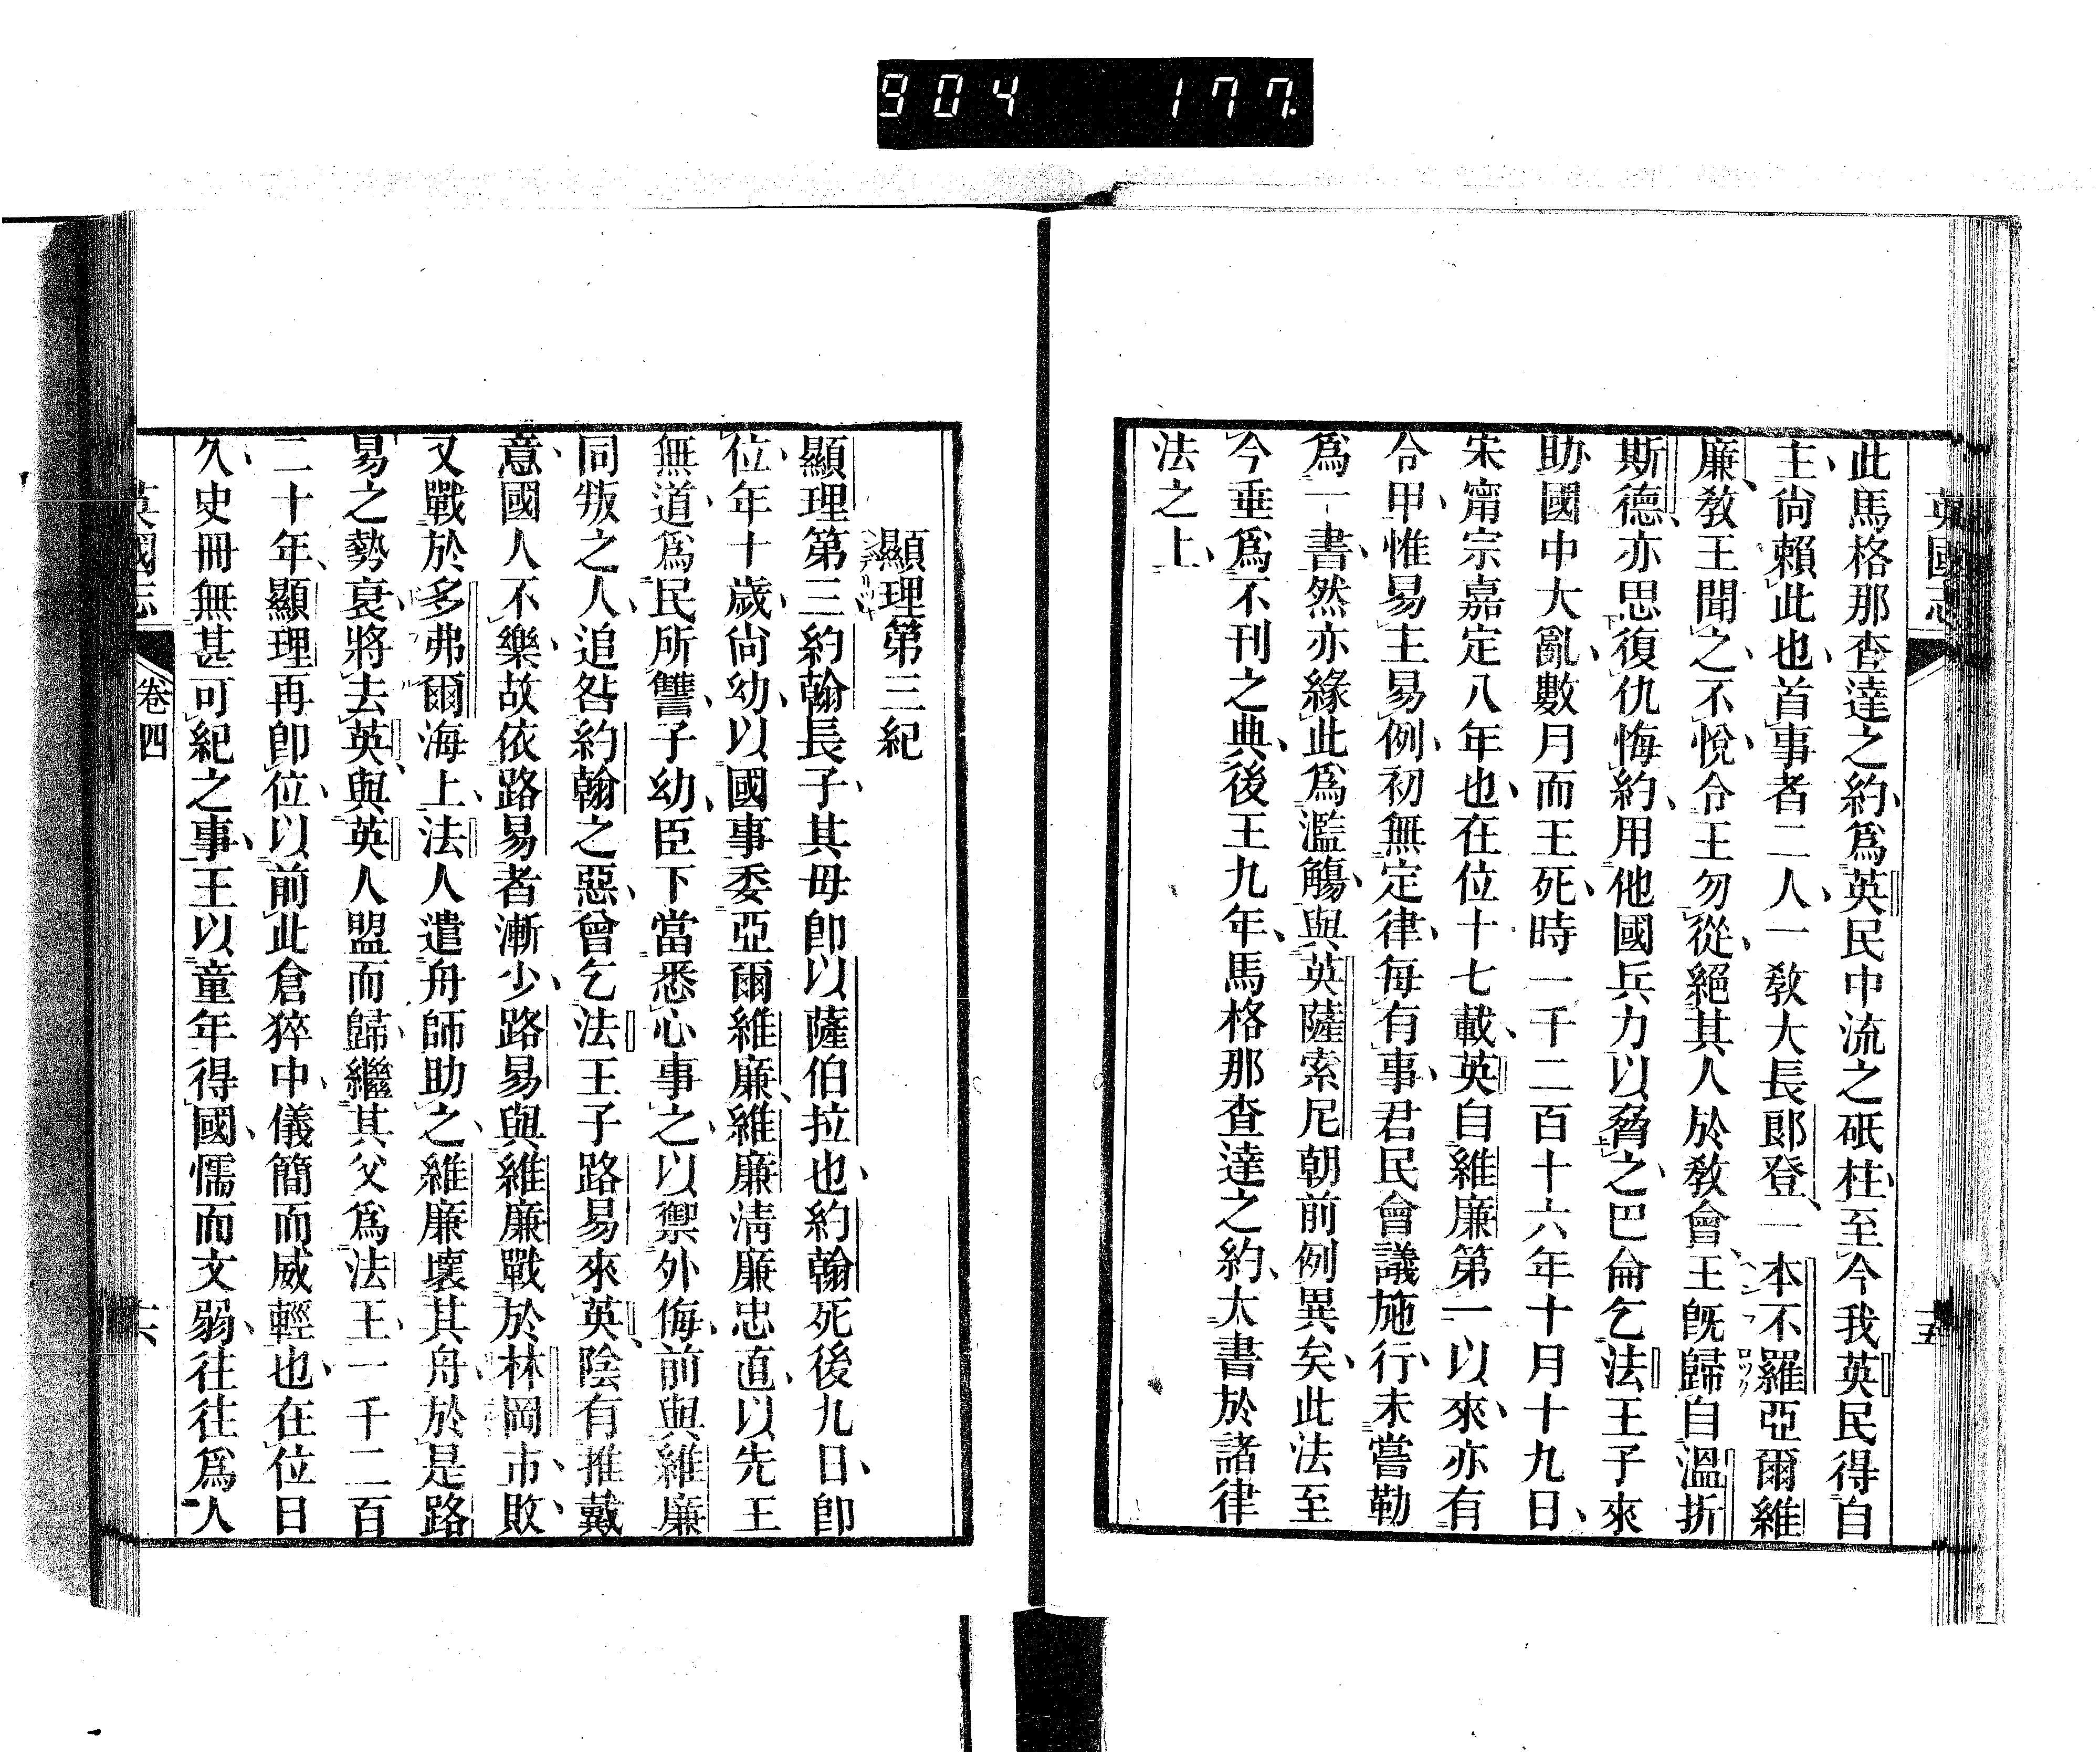 904 177
英國志
十五
此馬格那查達之約、爲英民中流之砥柱、至今我英民得自
主、尙賴此也、首事者二人、一敎大長郞登、一本不羅亞爾維
廉、敎王聞之、不悅、令王勿從、絕其人於敎會、王旣歸自溫折
斯德、亦思復仇悔約、用他國兵力以脅之、巴倫乞法王子來
助、國中大亂、數月而王死、時一千二百十六年十月十九日、
宋甯宗嘉定八年也、在位十七載、英自維廉第一以來、亦有
合甲、惟易主易例、初無定律、每有事、君民會議施行、未嘗勒
爲一書、然亦緣此爲濫觴、與英薩索尼朝前例異矣、此法至
今垂爲不刊之典、後王九年、馬格那查達之約、大書於諸律
法之上、
顯理第三紀
顯理第三、約翰長子、其母卽以薩伯拉也、約翰死後九日、卽
位、年十歲、尙幼、以國事委亞爾維廉、維廉淸廉忠直、以先王
無道、爲民所讐、子幼、臣下當悉心事之、以禦外侮、前與維廉
同叛之人、追咎約翰之惡、曾乞法王子路易來英、陰有推戴
意、國人不樂、故依路易者漸少、路易與維廉戰於林岡市、敗、
又戰於多弗爾海上、法人遣舟師助之、維廉壞其舟、於是路
易之勢衰、將去英、與英人盟而歸、繼其父爲法王、一千二百
二十年、顯理再卽位、以前此倉猝中、儀簡而威輕也、在位日
久、史冊無甚可紀之事、王以童年得國、懦而文弱、往往爲人
英國志
卷四
十六